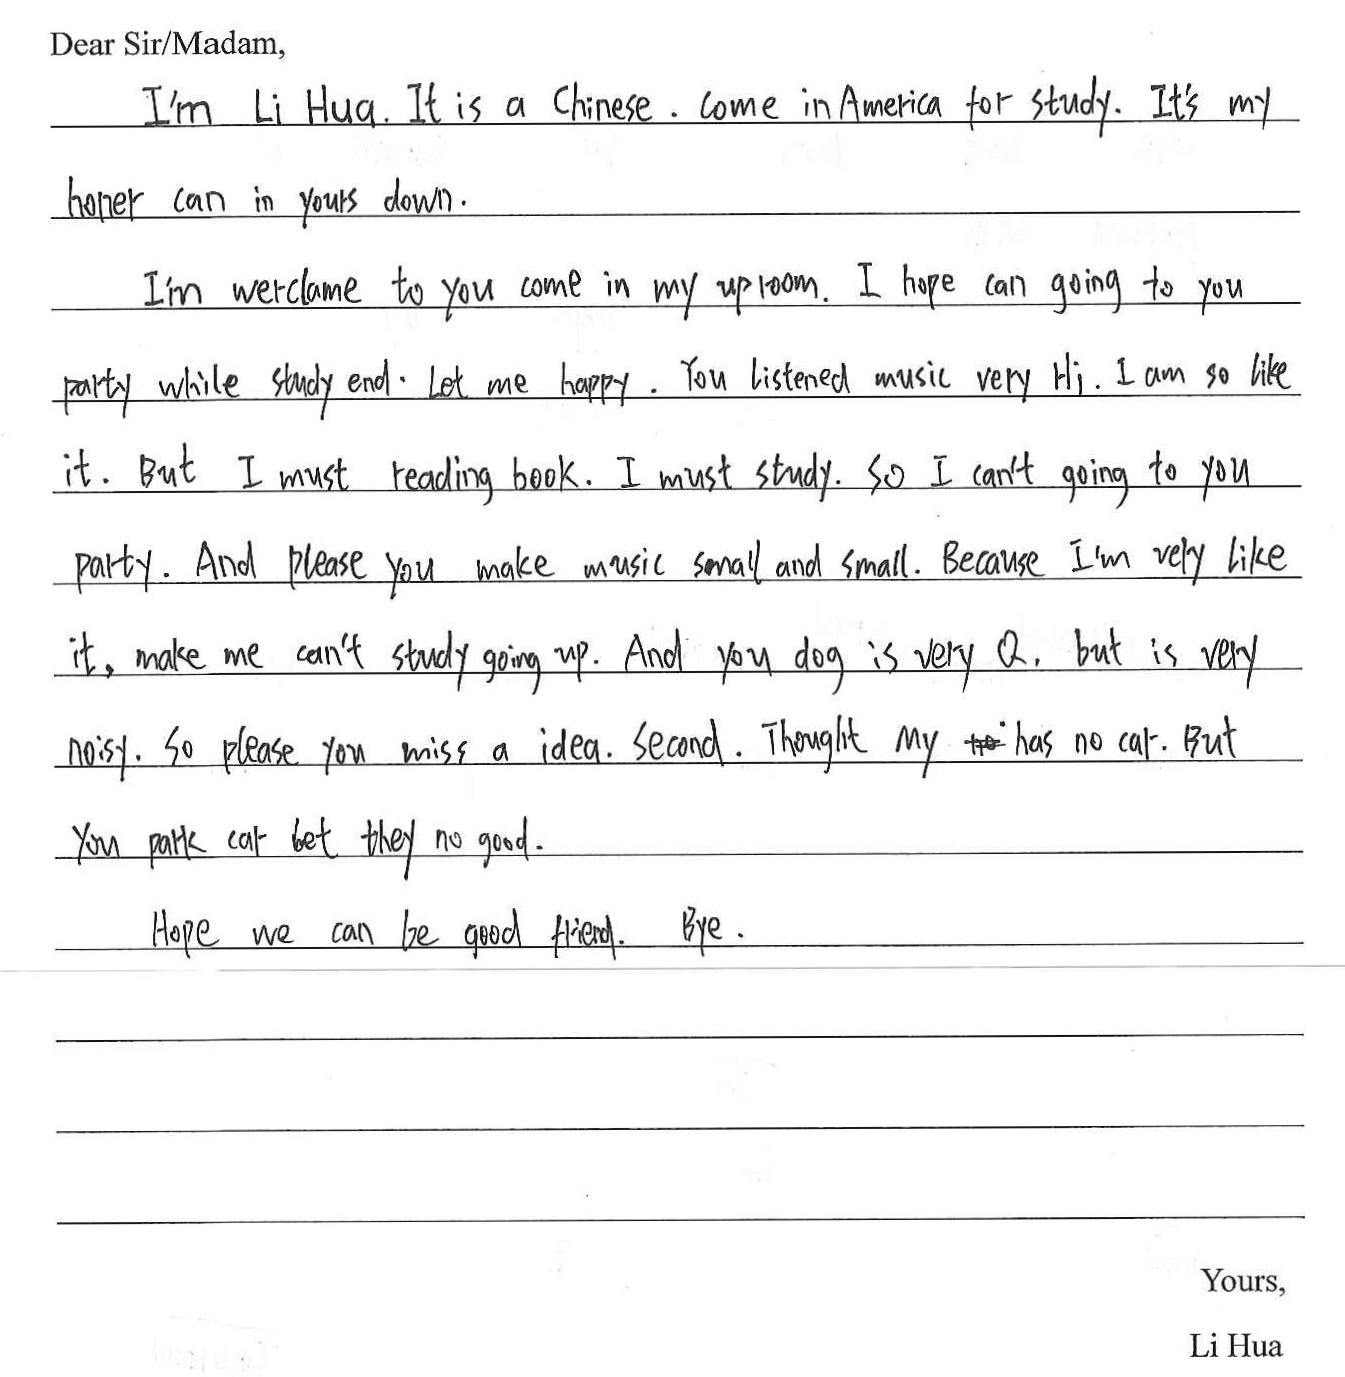 Dear Sir/Madam,
I'm Li Hua. It is a Chinese. Come in America for study. It's my
honer can in yours down.
I'm werclame to you come in my up room. I hope can going to you
party while study end. Let me happy. You listened music very Hi. I am so like
it. But I must reading book. I must study. So I can't going to you
party. And please you make music small and small. Because I'm very like
it, make me can't study going up. And you dog is very Q, but is very
noisy. So please you miss a idea. Second. Thought My has no car. But
You park car bet they no good.
Hope we can be good friend. Bye.
Yours,
Li Hua